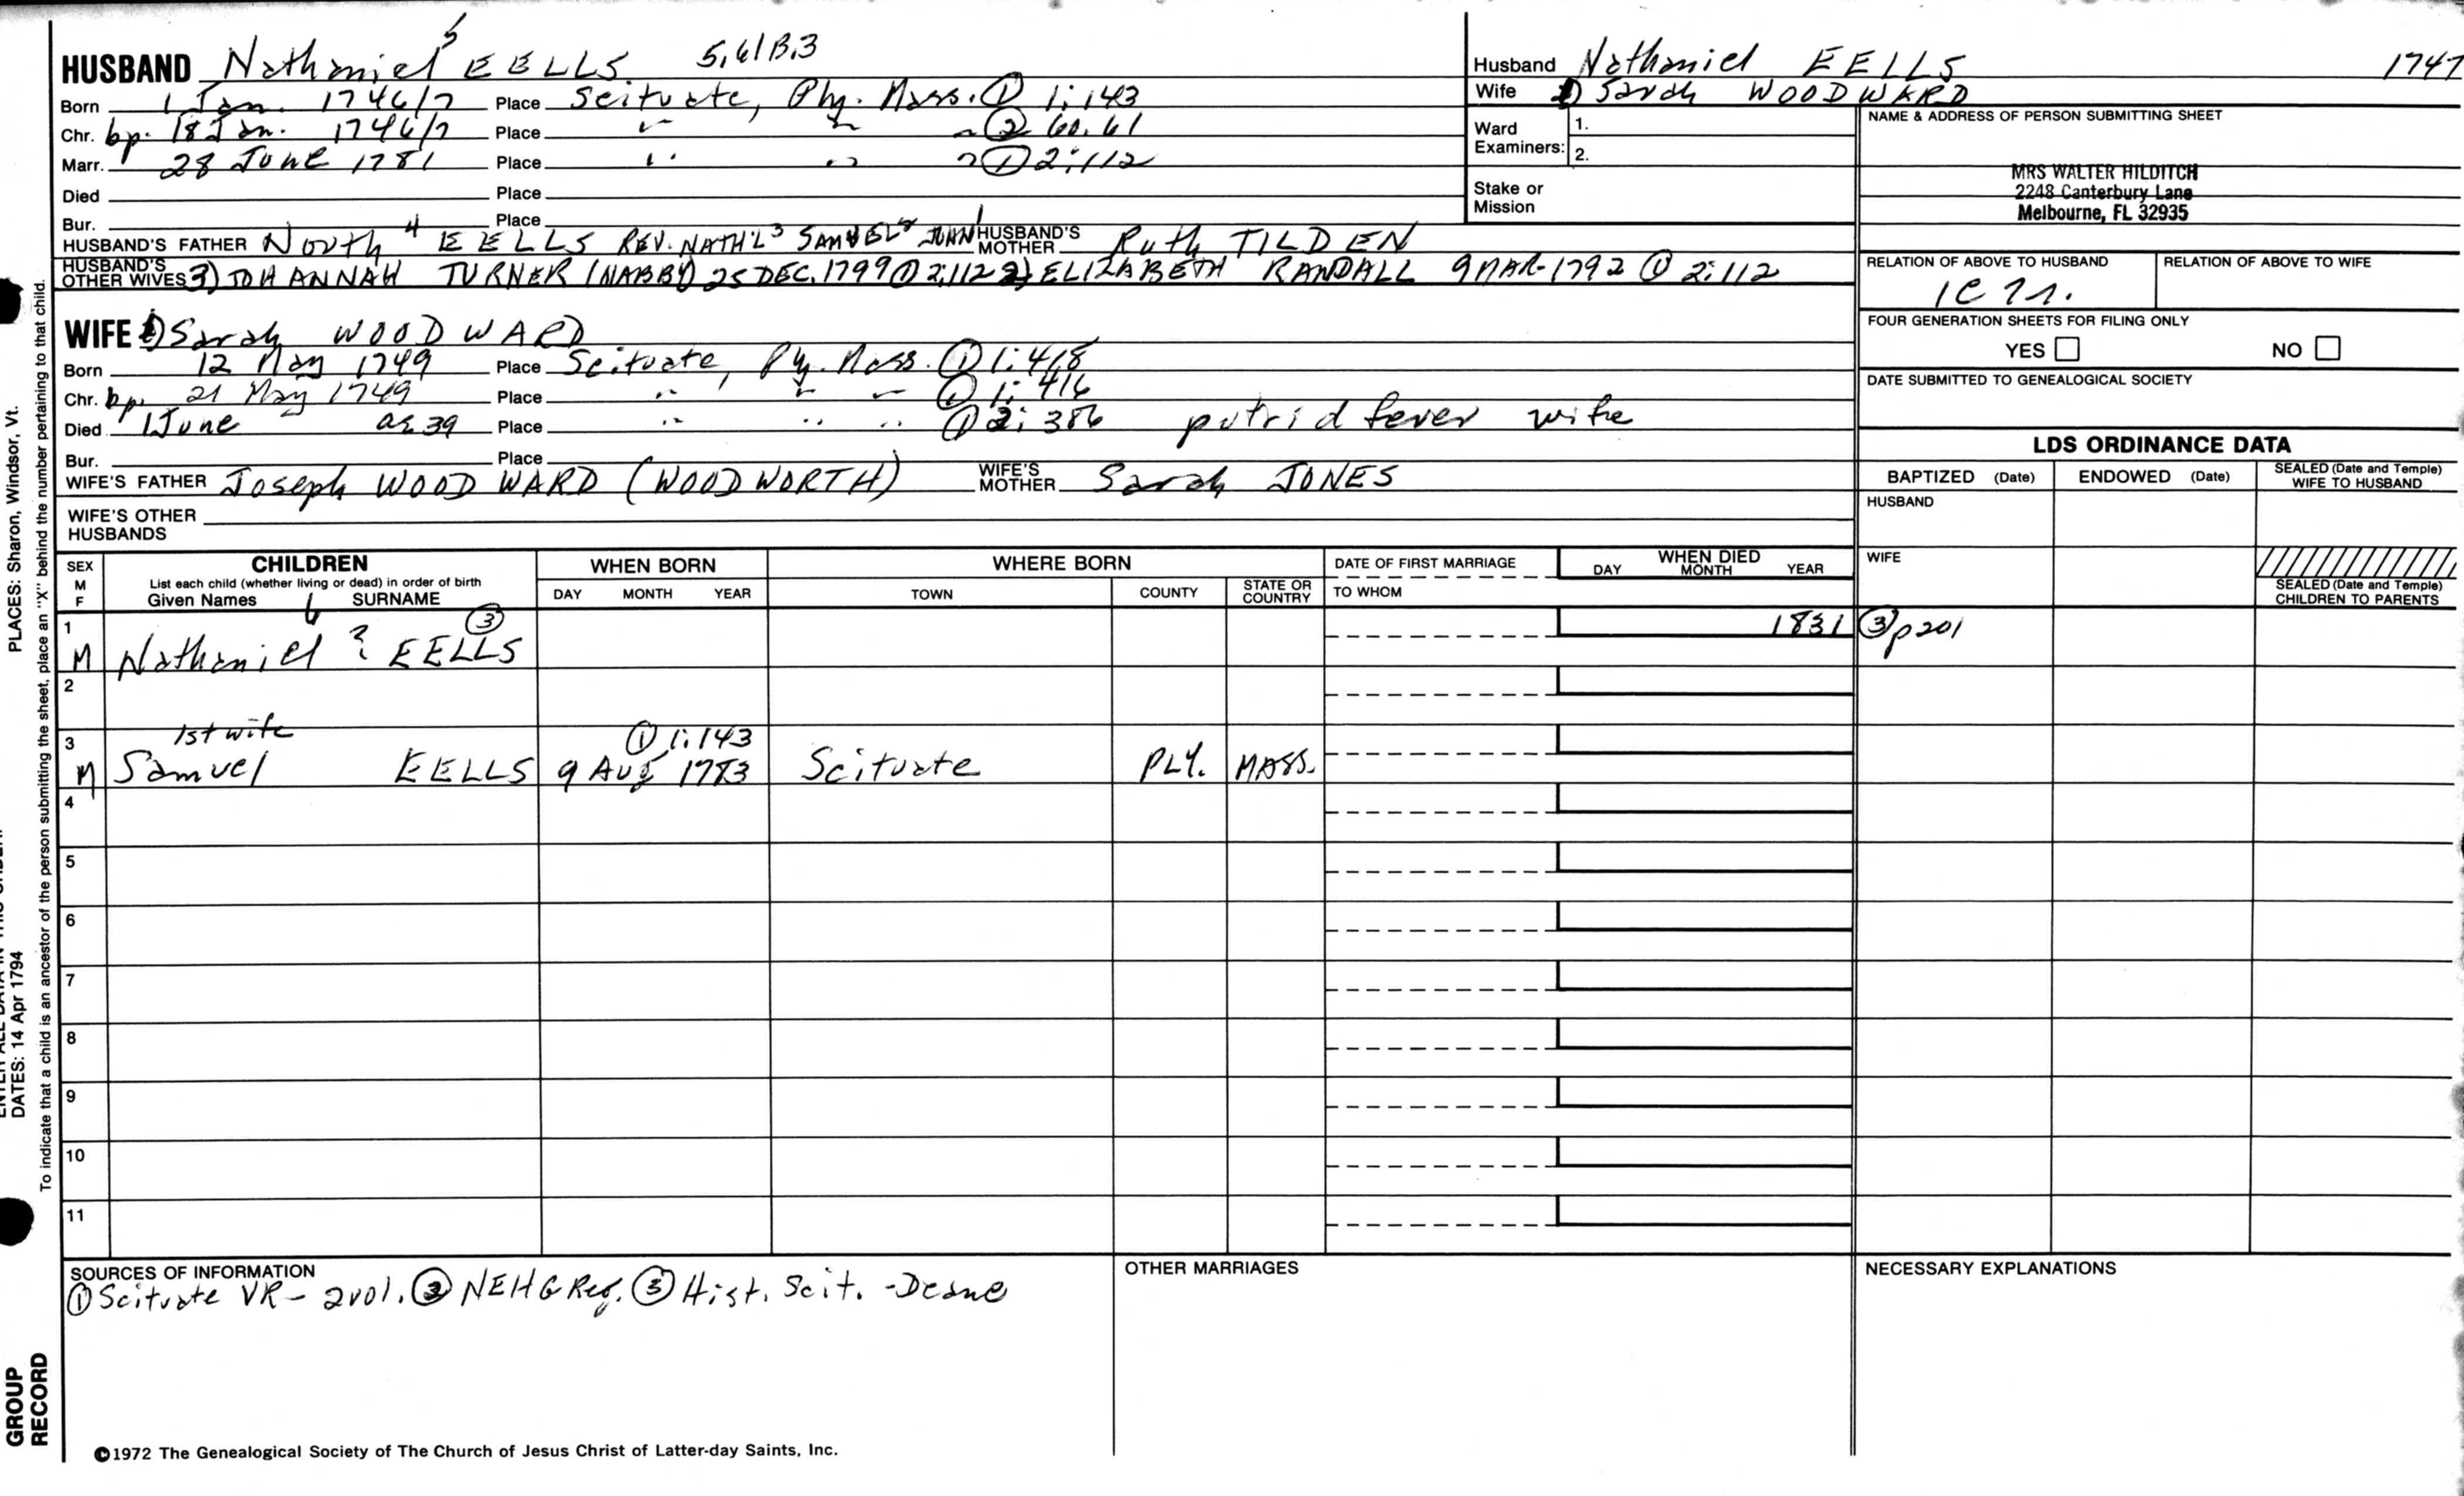 HUSBAND Nathaniel 5 EELLS 5,61B,3
Born 1 Jan. 1746/7 Place Scituate, Ply. Mass. ① 1:143
Chr. bp. 18 Jan. 1746/7 Place " " " ② 60.61
Marr. 28 June 1781 Place " " " ① 2:112
Died Place
Bur. Place
HUSBAND'S FATHER North 4 EELLS REV. NATH'L 3 SAMUEL 2 JOHN 1 HUSBAND'S MOTHER Ruth TILDEN
HUSBAND'S OTHER WIVES 3) JOHANNAH TURNER (NABBY) 25 DEC. 1799 ① 2:112 2) ELIZABETH RANDALL 9 MAR. 1792 ① 2:112
WIFE 1) Sarah WOODWARD
Born 12 May 1749 Place Scituate, Ply. Mass. ① 1:418
Chr. bp. 21 May 1749 Place " " " ① 1:416
Died 1 June ae 39 Place " " " ① 2:386 putrid fever wife
Bur. Place
WIFE'S FATHER Joseph WOODWARD (WOODWORTH) WIFE'S MOTHER Sarah JONES
WIFE'S OTHER HUSBANDS
Husband Nathaniel EELLS 1747
Wife 1) Sarah WOODWARD
Ward Examiners: 1.
2.
Stake or Mission
NAME & ADDRESS OF PERSON SUBMITTING SHEET
MRS WALTER HILDITCH
2248 Canterbury Lane
Melbourne, FL 32935
RELATION OF ABOVE TO HUSBAND RELATION OF ABOVE TO WIFE
FOUR GENERATION SHEETS FOR FILING ONLY
YES NO
DATE SUBMITTED TO GENEALOGICAL SOCIETY
LDS ORDINANCE DATA
BAPTIZED (Date) ENDOWED (Date) SEALED (Date and Temple) WIFE TO HUSBAND
HUSBAND
WIFE
SEALED (Date and Temple) CHILDREN TO PARENTS
SEX M F CHILDREN WHEN BORN WHERE BORN DATE OF FIRST MARRIAGE WHEN DIED
List each child (whether living or dead) in order of birth
Given Names SURNAME DAY MONTH YEAR TOWN COUNTY STATE OR COUNTRY TO WHOM DAY MONTH YEAR
1 M Nathaniel 6 ? EELLS ③ 1831 ③ p201
2
3 1st wife ① 1:143
M Samuel EELLS 9 Aug 1783 Scituate PLY. MASS.
4
5
6
7
8
9
10
11
SOURCES OF INFORMATION OTHER MARRIAGES NECESSARY EXPLANATIONS
① Scituate VR - 2 vol. ② NEHG Reg. ③ Hist. Scit. - Deane
©1972 The Genealogical Society of The Church of Jesus Christ of Latter-day Saints, Inc.
PLACES: Sharon, Windsor, Vt.
DATES: 14 Apr 1794
To indicate that a child is an ancestor of the person submitting the sheet, place an "X" behind the number pertaining to that child.
GROUP
RECORD